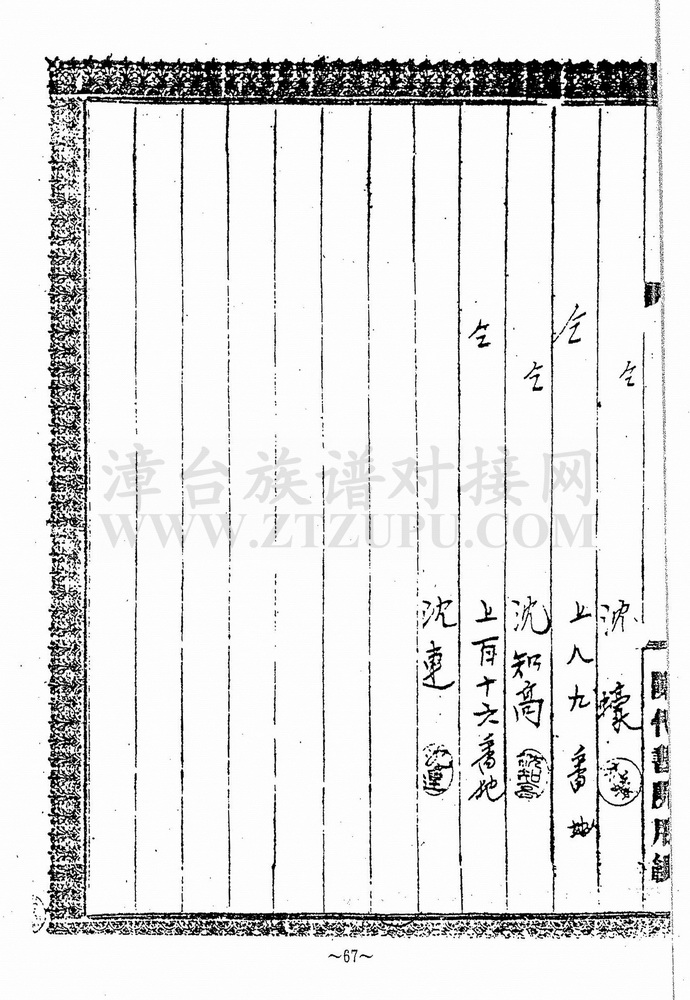 仝
沈 蠔
仝
上八九番地
仝
沈知高
仝
上百十六番地
沈連
沈知高
沈連
代書 用紙
漳台族谱对接网
WWW.ZTZUPU.COM
~67~